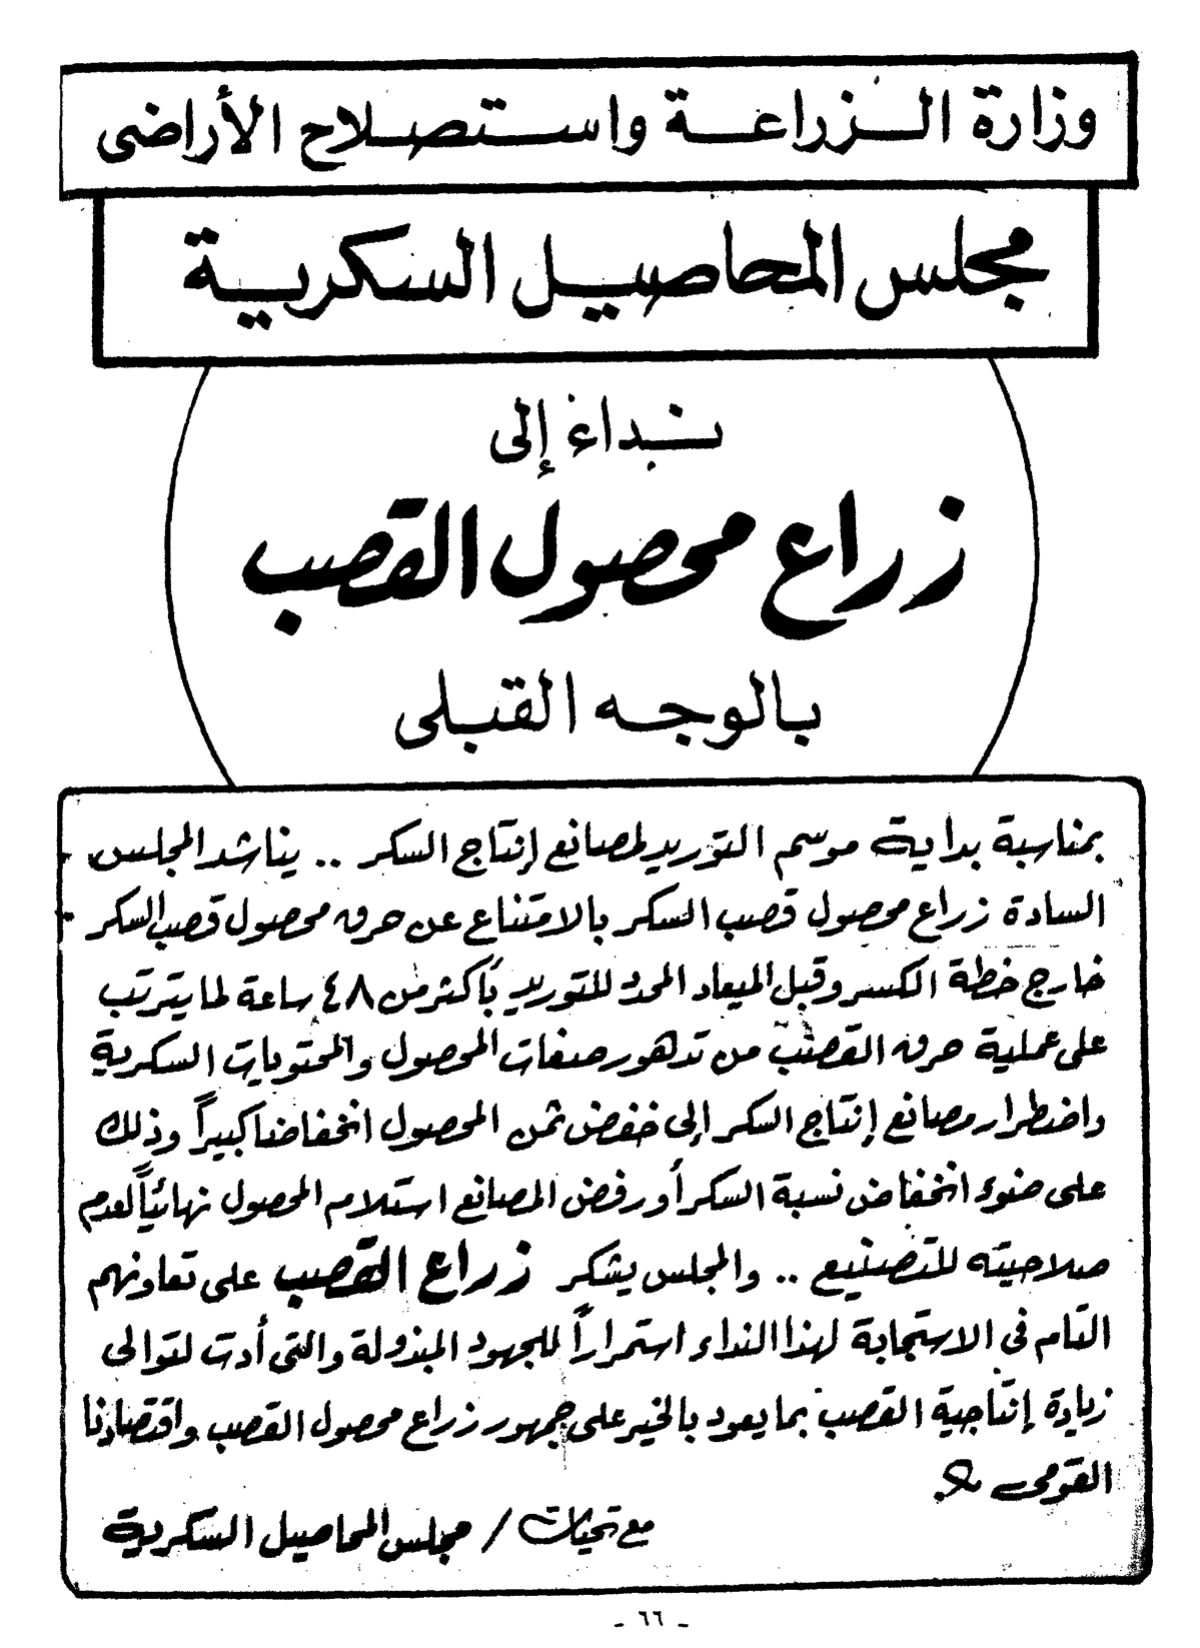 وزارة الزراعة واستصلاح الأراضى
مجلس المحاصيل السكرية
نداء إلى
زراع محصول القصب
بالوجه القبلى
بمناسبة بداية موسم التوريد لمصانع إنتاج السكر .. يناشد المجلس
السادة زراع محصول قصب السكر بالامتناع عن حرق محصول قصب السكر
خارج خطة الكسر وقبل الميعاد المحدد للتوريد بأكثر من ٤٨ ساعة لما يترتب
على عملية حرق القصب من تدهور صفات المحصول والمحتويات السكرية
واضطرار مصانع إنتاج السكر إلى خفض ثمن المحصول انخفاضا كبيراً وذلك
على ضوء انخفاض نسبة السكر أو رفض المصانع استلام المحصول نهائياً لعدم
صلاحيته للتصنيع .. والمجلس يشكر زراع القصب على تعاونهم
التام فى الاستجابة لهذا النداء استمراراً للجهود المبذولة والتى أدت لتوالى
زيادة إنتاجية القصب بما يعود بالخير على جمهور زراع محصول القصب واقتصادنا
القومى
مع تحيات / مجلس المحاصيل السكرية
- ٦٦ -